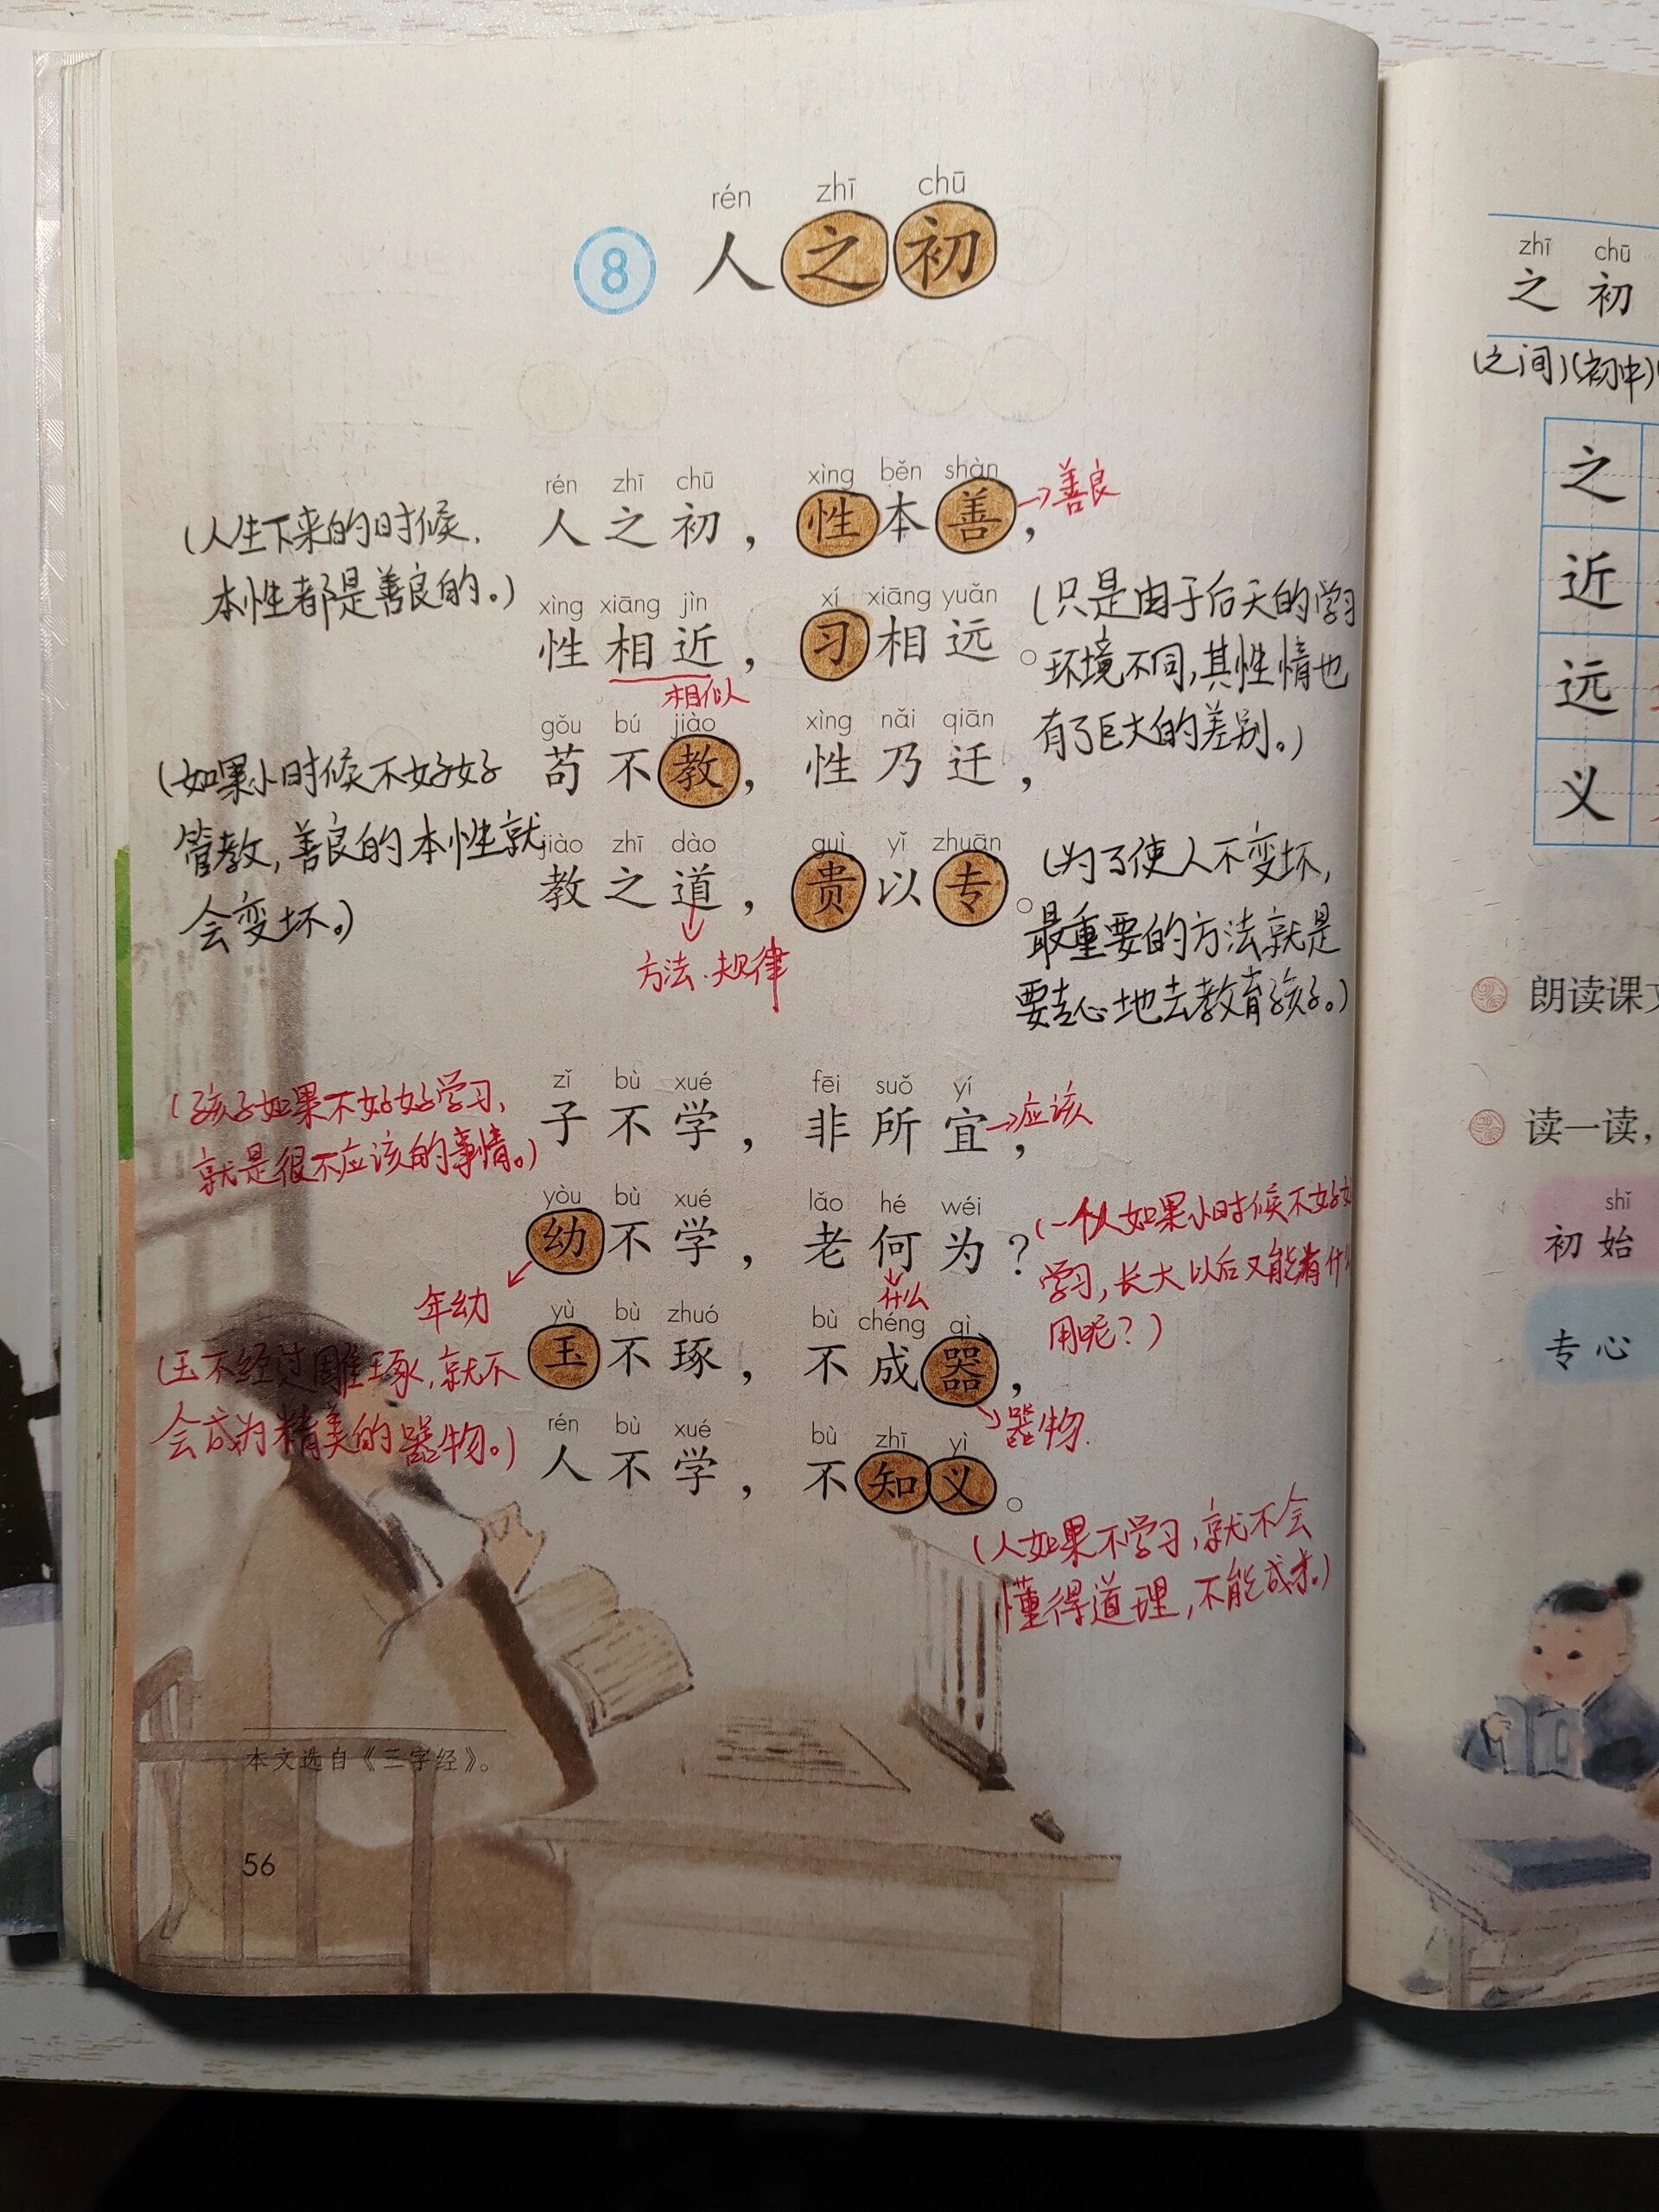 rén zhī chū
8 人之初
rén zhī chū xìng běn shàn
人之初，性本善，
→善良
(人生下来的时候，
本性都是善良的。)
xìng xiāng jìn xí xiāng yuǎn
性相近，习相远。
相似
(只是由于后天的学习
环境不同，其性情也
有了巨大的差别。)
gǒu bú jiào xìng nǎi qiān
苟不教，性乃迁，
(如果小时候不好好
管教，善良的本性就
会变坏。)
jiào zhī dào guì yǐ zhuān
教之道，贵以专。
方法.规律
(为了使人不变坏，
最重要的方法就是
要专心地去教育孩子。)
zǐ bù xué fēi suǒ yí
子不学，非所宜，
→应该
(孩子如果不好好学习，
就是很不应该的事情。)
yòu bù xué lǎo hé wéi
幼不学，老何为？
年幼
什么
(一个人如果小时候不好好
学习，长大以后又能有什么
用呢？)
yù bù zhuó bù chéng qì
玉不琢，不成器，
器物.
(玉不经过雕琢，就不
会成为精美的器物。)
rén bù xué bù zhī yì
人不学，不知义。
(人如果不学习，就不会
懂得道理，不能成才。)
本文选自《三字经》。
56
zhī chū
之初
(之间)(初中)(
之
近
远
义
朗读课文
读一读，
shǐ
初始
专心